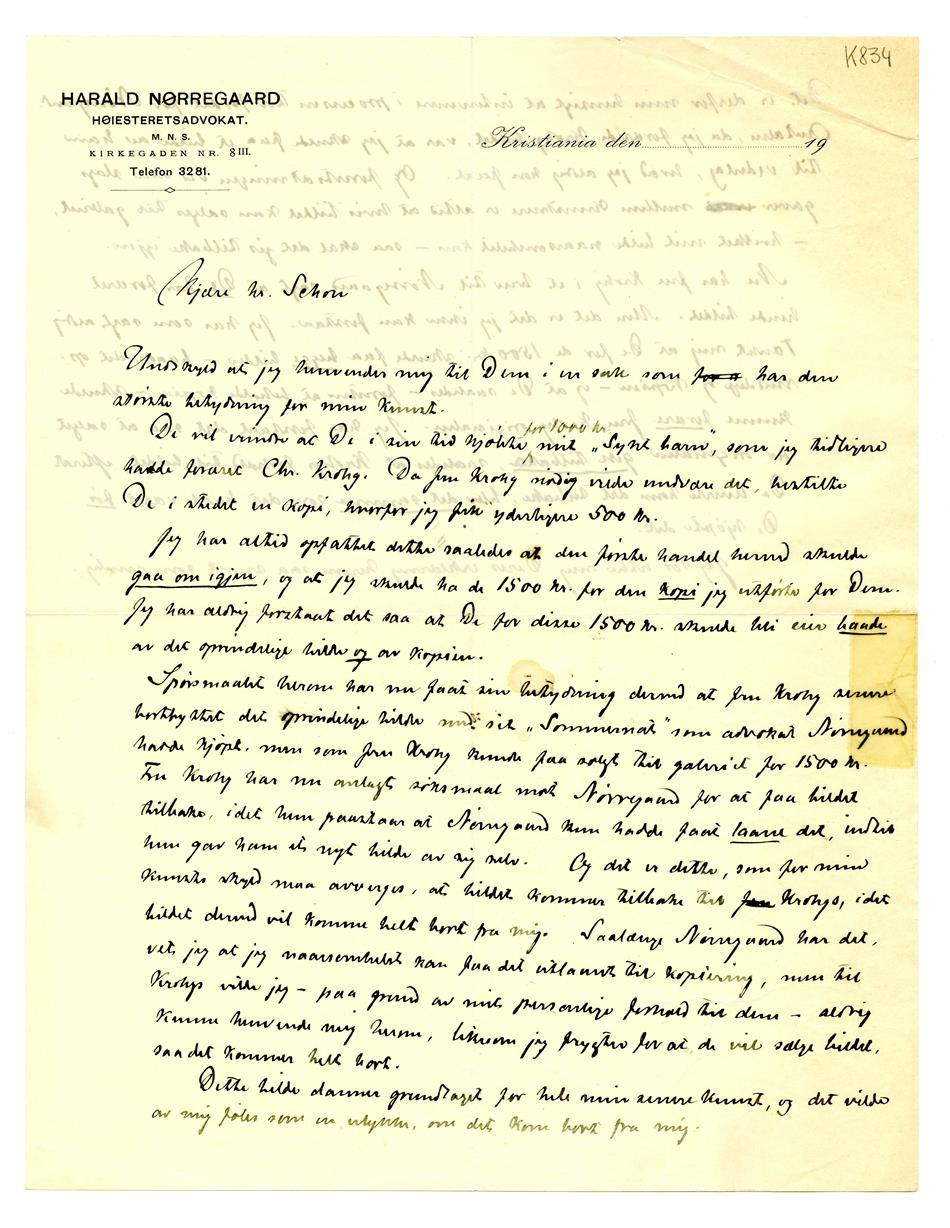 K834
HARALD NØRREGAARD
HØIESTERETSADVOKAT.
M. N. S.
KIRKEGADEN NR. 8 III.
Telefon 3281.
Kristiania den 19
Kjære hr. Schou
Undskyld at jeg henvender mig til Dem i en sak som har den
største betydning for min kunst.
for 1000 kr
De vil erindre at De i sin tid kjøbte mit „Sykt barn", som jeg tidligere
hadde foræret Chr. Krohg. Da fru Krohg nødig vilde undvære det, bestilte
De i stedet en kopi, hvorfor jeg fik yderligere 500 kr.
Jeg har altid opfattet dette saaledes at den første handel herved skulde
gaa om igjen, og at jeg skulde ha de 1500 kr. for den kopi jeg utførte for Dem.
Jeg har aldrig forstaat det saa at De for disse 1500 kr. skulde bli eier baade
av det oprindelige billede og av kopien.
Spørsmaalet herom har nu faat sin betydning derved at fru Krohg senere
bortbyttet det oprindelige billede med sit „Sommernat" som advokat Nørregaard
hadde kjøpt, men som fru Krohg kunde faa solgt til galeriet for 1500 kr.
Fru Krohg har nu anlagt søksmaal mot Nørregaard for at faa billedet
tilbake, idet hun paastaar at Nørregaard kun hadde faat laane det, indtil
hun gav ham et nyt billede av sig selv. Og det er dette, som for min
kunsts skyld maa avverges, at billedet kommer tilbake til fru Krohgs, idet
billedet derved vil komme helt bort fra mig. Saalænge Nørregaard har det,
vet jeg at jeg naarsomhelst kan faa det utlaant til kopiering, men til
Krohgs vilde jeg – paa grund av mit personlige forhold til dem – aldrig
kunne henvende mig herom, likesom jeg frygter for at de vil sælge billedet,
saa det kommer helt bort.
Dette billede danner grundlaget for hele min senere kunst, og det vilde
av mig føles som en ulykke, om det kom bort fra mig.